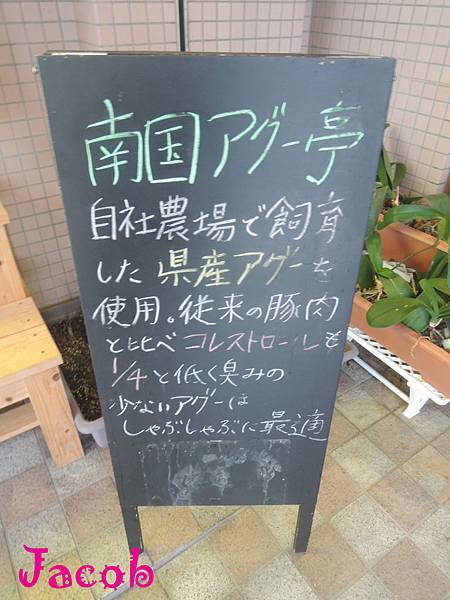 南国アグー亭
自社農場で飼育
した県産アグーを
使用。従来の豚肉
と比べコレストロールも
1/4と低く臭みの
少ないアグーは
しゃぶしゃぶに最適
Jacob